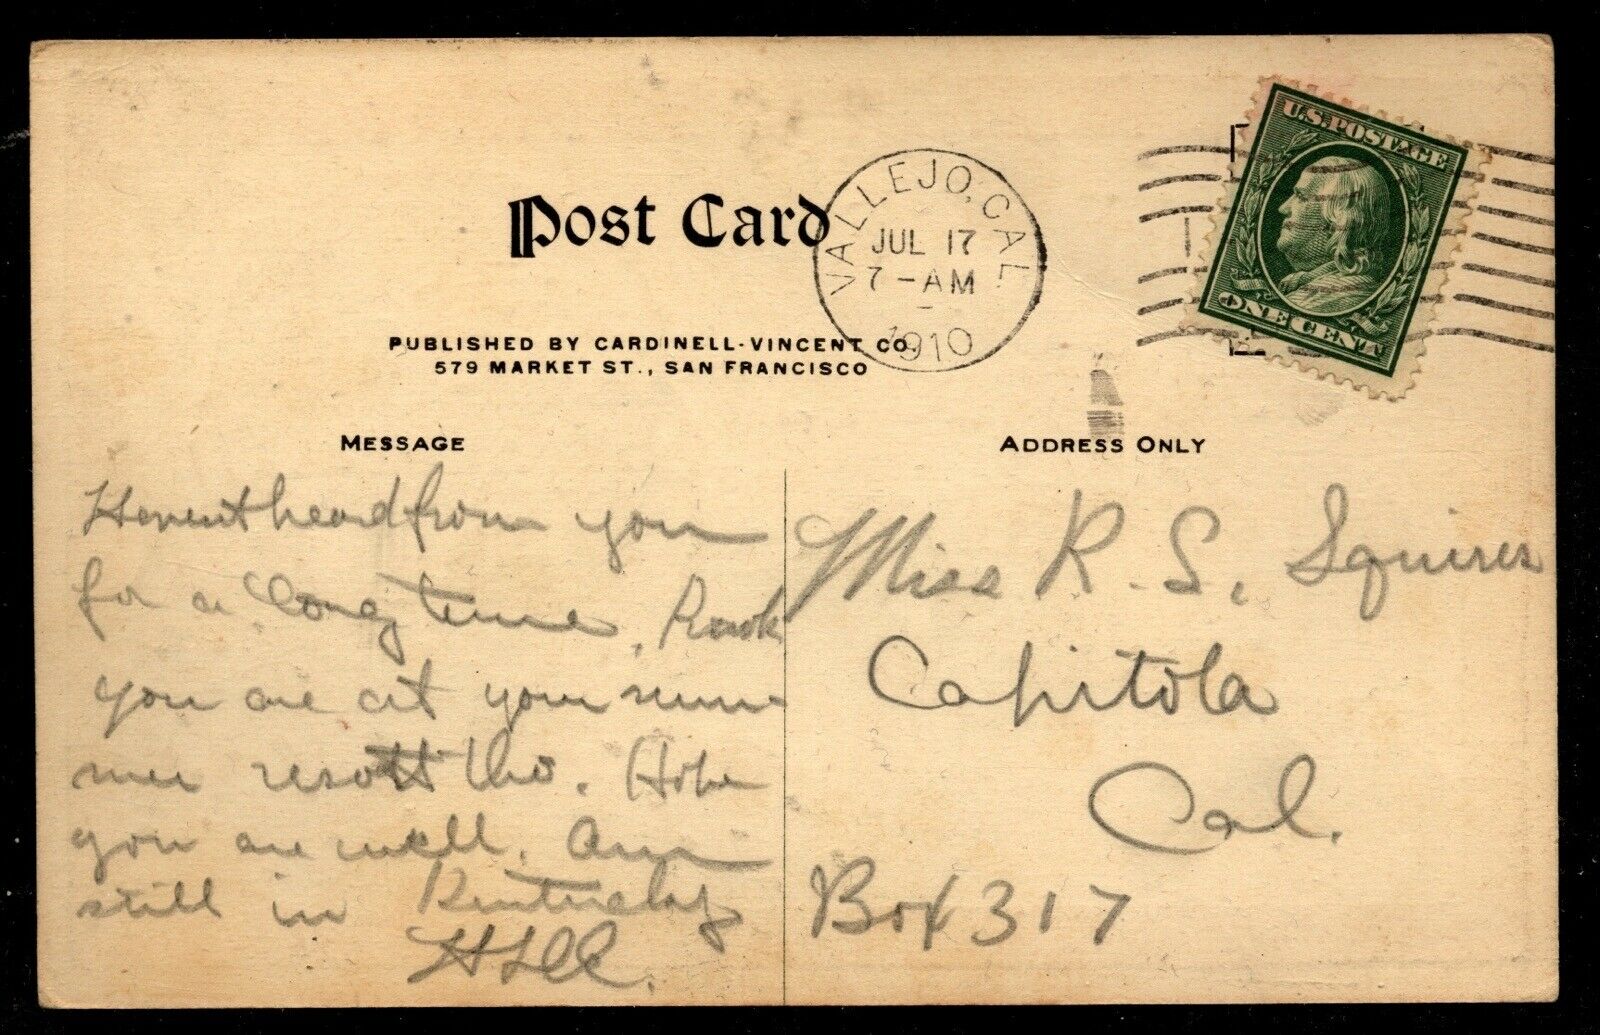 Post Card
VALLEJO, CAL.
JUL 17
7-AM
1910
U.S. POSTAGE
ONE CENT
PUBLISHED BY CARDINELL-VINCENT CO.
579 MARKET ST., SAN FRANCISCO
MESSAGE
Havent heard from you
for a long time,
you are at your sum-
mer resort tho. Hope
you are well. Am
still in Kentucky
ADDRESS ONLY
Miss R. S. Squires
Capitola
Cal.
Box 317